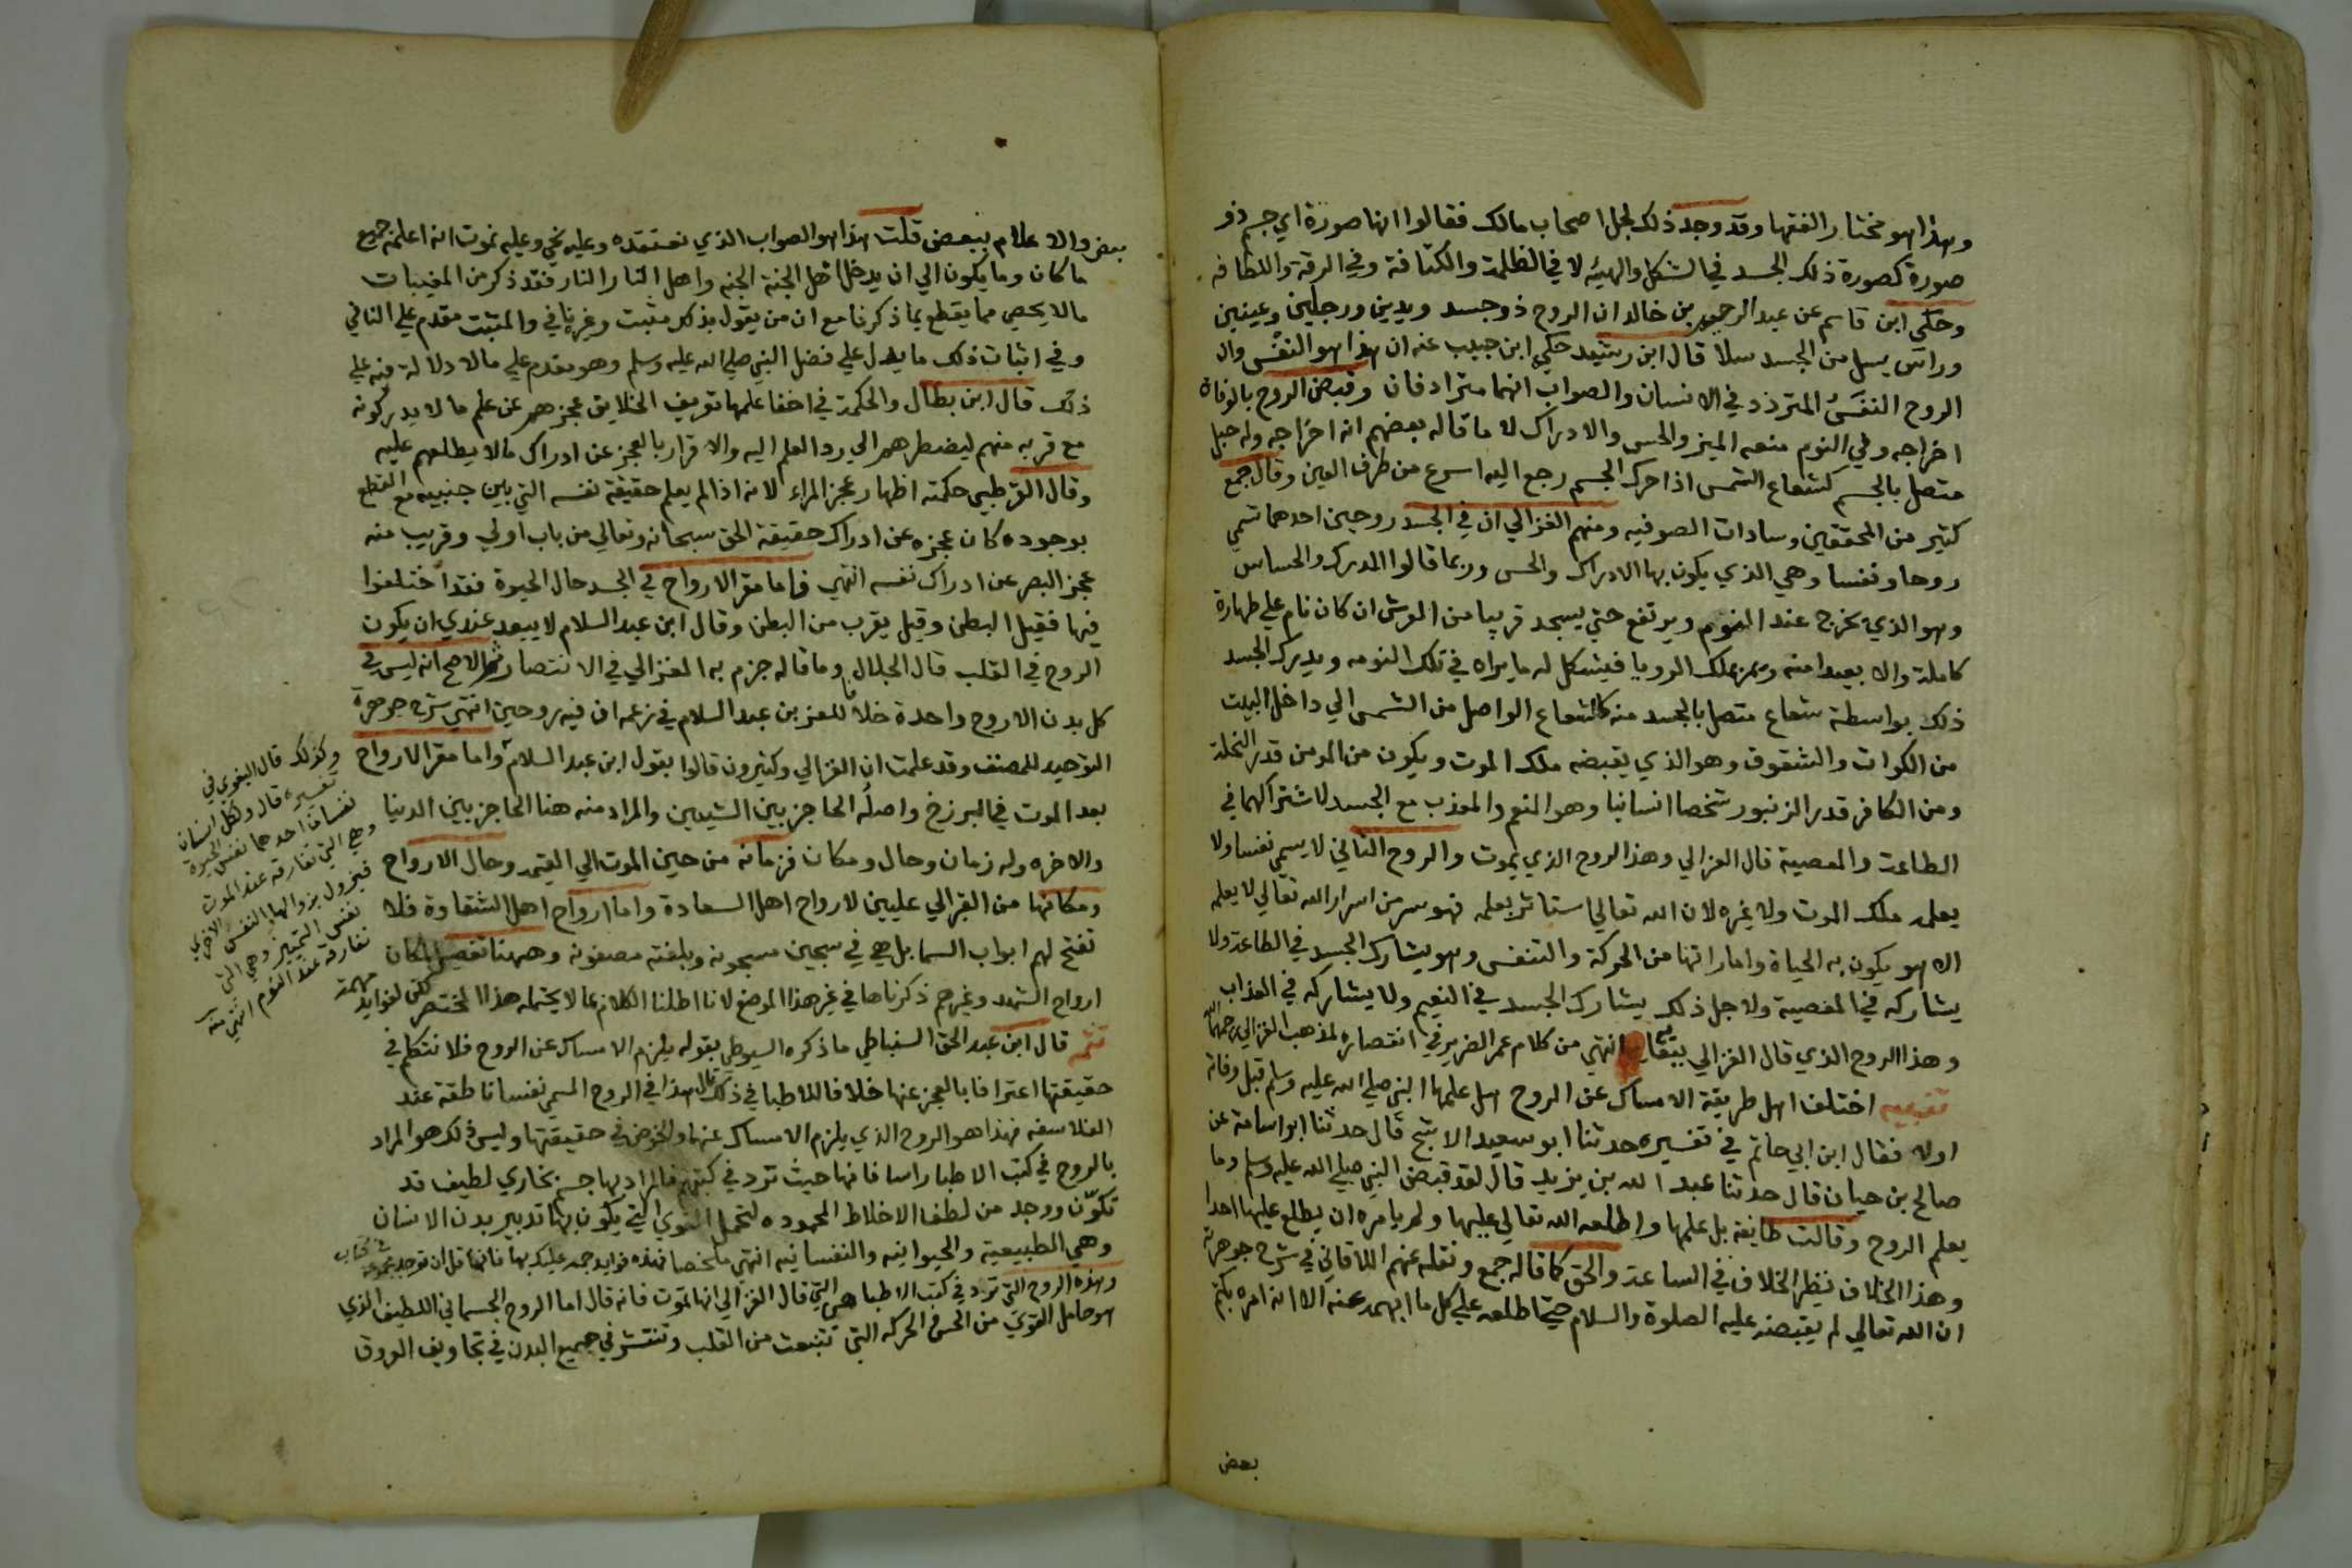 وهذا هو مختار الفقها وقد وجد ذلك لجل اصحاب مالك فقالوا انها صورة اي جسم ذو
صورة كصورة ذلك الجسد في الشكل والهيئه لا في الظلمة والكثافة وفي الرقة واللطافه
وحكى ابن قاسم عن عبد الرحيم بن خالد ان الروح ذو جسد ويدين ورجلين وعينين
وراس يسل من الجسد سلا قال ابن رشد حكي ابن حبيب عنه ان هذا هو النفس وال
الروح النفس المتردد في الانسان والصواب انهما مترادفان وقبض الروح بالوفاة
اخراجه وفي النوم منعه الميز والحس والادراك لا ما قاله بعضهم انه اخراجه وله حبل
متصل بالجسم كشعاع الشمس اذا حرك الجسم رجع اليه اسرع من طرف العين وقال جمع
كثير من المحققين وسادات الصوفيه ومنهم الغزالي ان في الجسد روحين احدهما تسمي
روحا ونفسا وهي الذي يكون بها الادراك والحس وربما قالوا المدرك والحساس
وهو الذي يخرج عند النوم ويرتفع حتي يسجد قريبا من العرش ان كان نام علي طهارة
كاملة والا بعيدا منه ملك الرويا فيشكل له ما يراه في تلك النومه ويدرك الجسد
ذلك بواسطة شعاع متصل بالجسد منه كالشعاع الواصل من الشمس الي داخل البيت
من الكوات والشقوق وهو الذي يقبضه ملك الموت ويكون من المومن قدر النحلة
ومن الكافر قدر الزنبور شخصا انسانيا وهو المنعم والمعذب مع الجسد لاشتراكهما في
الطاعة والمعصية قال الغزالي وهذا الروح الذي يموت والروح الثاني لا يسمي نفسا ولا
يعلمه ملك الموت ولا غيره لان الله تعالي استاثر بعلمه فهو سر من اسرار الله تعالي لا يعلمه
الا هو يكون به الحياة واماراتها من الحركة والتنفس وهو يشارك الجسد في الطاعة ولا
يشاركه في المعصية ولاجل ذلك يشارك الجسد في النعيم ولا يشاركه في العذاب
وهذا الروح الذي قال الغزالي انتهي من كلام عمر الضرير في انتصاره لمذهب الغزالي رحمه الله
تنبيه اختلف اهل طريقة الامساك عن الروح هل علمها النبي صلي الله عليه وسلم قبل وفاته
اولا فقال ابن ابي حاتم في تفسيره حدثنا ابو سعيد الاشج قال حدثنا ابو اسامة عن
صالح بن حيان قال حدثنا عبد الله بن يزيد قال لقد قبض النبي صلي الله عليه وسلم وما
يعلم الروح وقالت طايفة بل علمها واطلعه الله تعالي عليها ولم يامره ان يطلع عليها احدا
وهذا الخلاف نظير الخلاف في الساعة والحق كما قاله جمع ونقله عنهم اللاقاني في شرح جوهرته
ان الله تعالي لم يقبضه عليه الصلوة والسلام حتي اطلعه علي كل ما ابهمه عنه الا انه امره بكتم
بعض
بعض والاعلام ببعض قلت هذا هو الصواب الذي نعتقده وعليه نحي وعليه نموت انه اعلمه جميع
ما كان وما يكون الي ان يدخل اهل الجنة الجنه واهل النار النار فقد ذكر من المغيبات
مالا يحصي مما يقطع بما ذكرنا مع ان من يقول بذلك مثبت وغيره نافي والمثبت مقدم علي النافي
وفي اثبات ذلك ما يدل علي فضل النبي صلي الله عليه وسلم وهو مقدم علي مالا دلالة فيه علي
ذلك قال ابن بطال والحكمة في اخفا علمها تعريف الخلايق عجزهم عن علم ما لا يدركونه
مع قربه منهم ليضطرهم الي رد العلم اليه والاقرار بالعجز عن ادراك مالا يطلعهم عليه
وقال القرطبي حكمته اظهار عجز المراء لانه اذا لم يعلم حقيقة نفسه التي بين جنبيه مع القطع
بوجوده كان عجزه عن ادراك حقيقة الحق سبحانه وتعالي من باب اولي وقريب منه
عجز البصر عن ادراك نفسه انتهي فاما مقر الارواح في الجسد حال الحيوة فقد اختلفوا
فيها فقيل البطن وقيل يقرب من البطن وقال ابن عبد السلام لا يبعد عندي ان يكون
الروح في القلب قال الجلال وما قاله جزم به الغزالي في الانتصار ثم الاصح انه ليس في
كل بدن الا روح واحدة خلافا للعز بن عبد السلام في زعمه ان فيه روحين انتهي شرح جوهرة
التوحيد للمصنف وقد علمت ان الغزالي وكثيرون قالوا بقول ابن عبد السلام واما مقر الارواح
بعد الموت في البرزخ واصله الحاجز بين الشيئين والمراد منه هنا الحاجز بين الدنيا
والاخره وله زمان وحال ومكان فزمانه من حين الموت الي القيمه وحال الارواح
ومكانها من القبر الي عليين لارواح اهل السعادة واما ارواح اهل الشقاوة فلا
تفتح لهم ابواب السما بل هي في سجين مسجونه وبلعنته مصفونه وههنا تفصيل لمكان
ارواح الشهدا وغيرهم ذكرناها في غير هذا الموضع لانا اطلنا الكلام بما لا يحتمله هذا المختصر لكن لفوايد مهمة
تتمه قال ابن عبد الحق السنباطي ما ذكره السيوطي بقوله يلزم الامساك عن الروح فلا نتكلم في
حقيقتها اعترافا بالعجز عنها خلافا للاطبا في ذلك قال هذا في الروح المسمي نفسا ناطقة عند
الفلاسفه فهذا هو الروح الذي يلزم الامساك عنها والخوض في حقيقتها وليس ذلك هو المراد
بالروح في كتب الاطبا راسا فانها حيث ترد في كتبهم فالمراد بها جسم بخاري لطيف قد
تكوّن ووجد من لطف الاخلاط المحموده لتحمل القوي التي يكون بها تدبير بدن الانسان
وهي الطبيعية والحيوانيه والنفسانيه انتهي ملخصا فهذه فوايد جمه عليك بها فانها قل ان توجد مجموعه في كتاب
وهذه الروح التي ترد في كتب الاطبا هي التي قال الغزالي انها تموت فانه قال اما الروح الجسماني اللطيف الذي
هو حامل القوي من الحس والحركه التي تنبعث من القلب وتنتشر في جميع البدن في تجاويف العروق
وكذلك قال البغوي في
تفسيره قال ولكل انسان
نفسان احدهما نفس الحيوة
وهي التي تفارقه عند الموت
فيزول بزوالها النفس والاخري
نفس التمييز وهي التي
تفارقه عند النوم انتهي منه